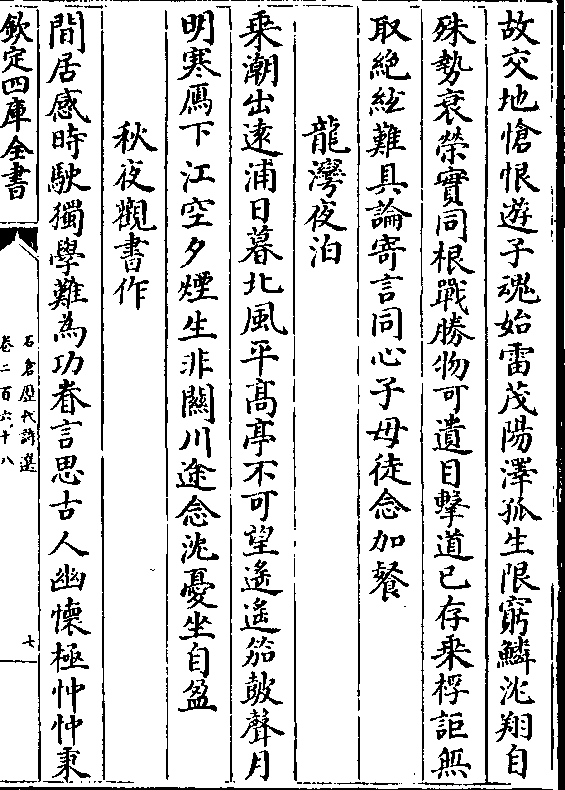 故交地愴恨遊子魂始雷茂陽澤孤生限窮鱗沈翔自
殊勢衰榮實同根戰勝物可遺目擊道已存乗桴詎無
取絶絃難具論寄言同心子毋徒念加餐
龍灣夜泊
乗潮出遠浦日暮北風平髙亭不可望遙遙笳皷聲月
明寒鴈下江空夕煙生非闗川途念沈憂坐自盈
秋夜觀書作
間居感時駛獨學難為功眷言思古人幽懐極忡忡秉
欽定四庫全書
石倉歴代詩選
卷二百六十八
七